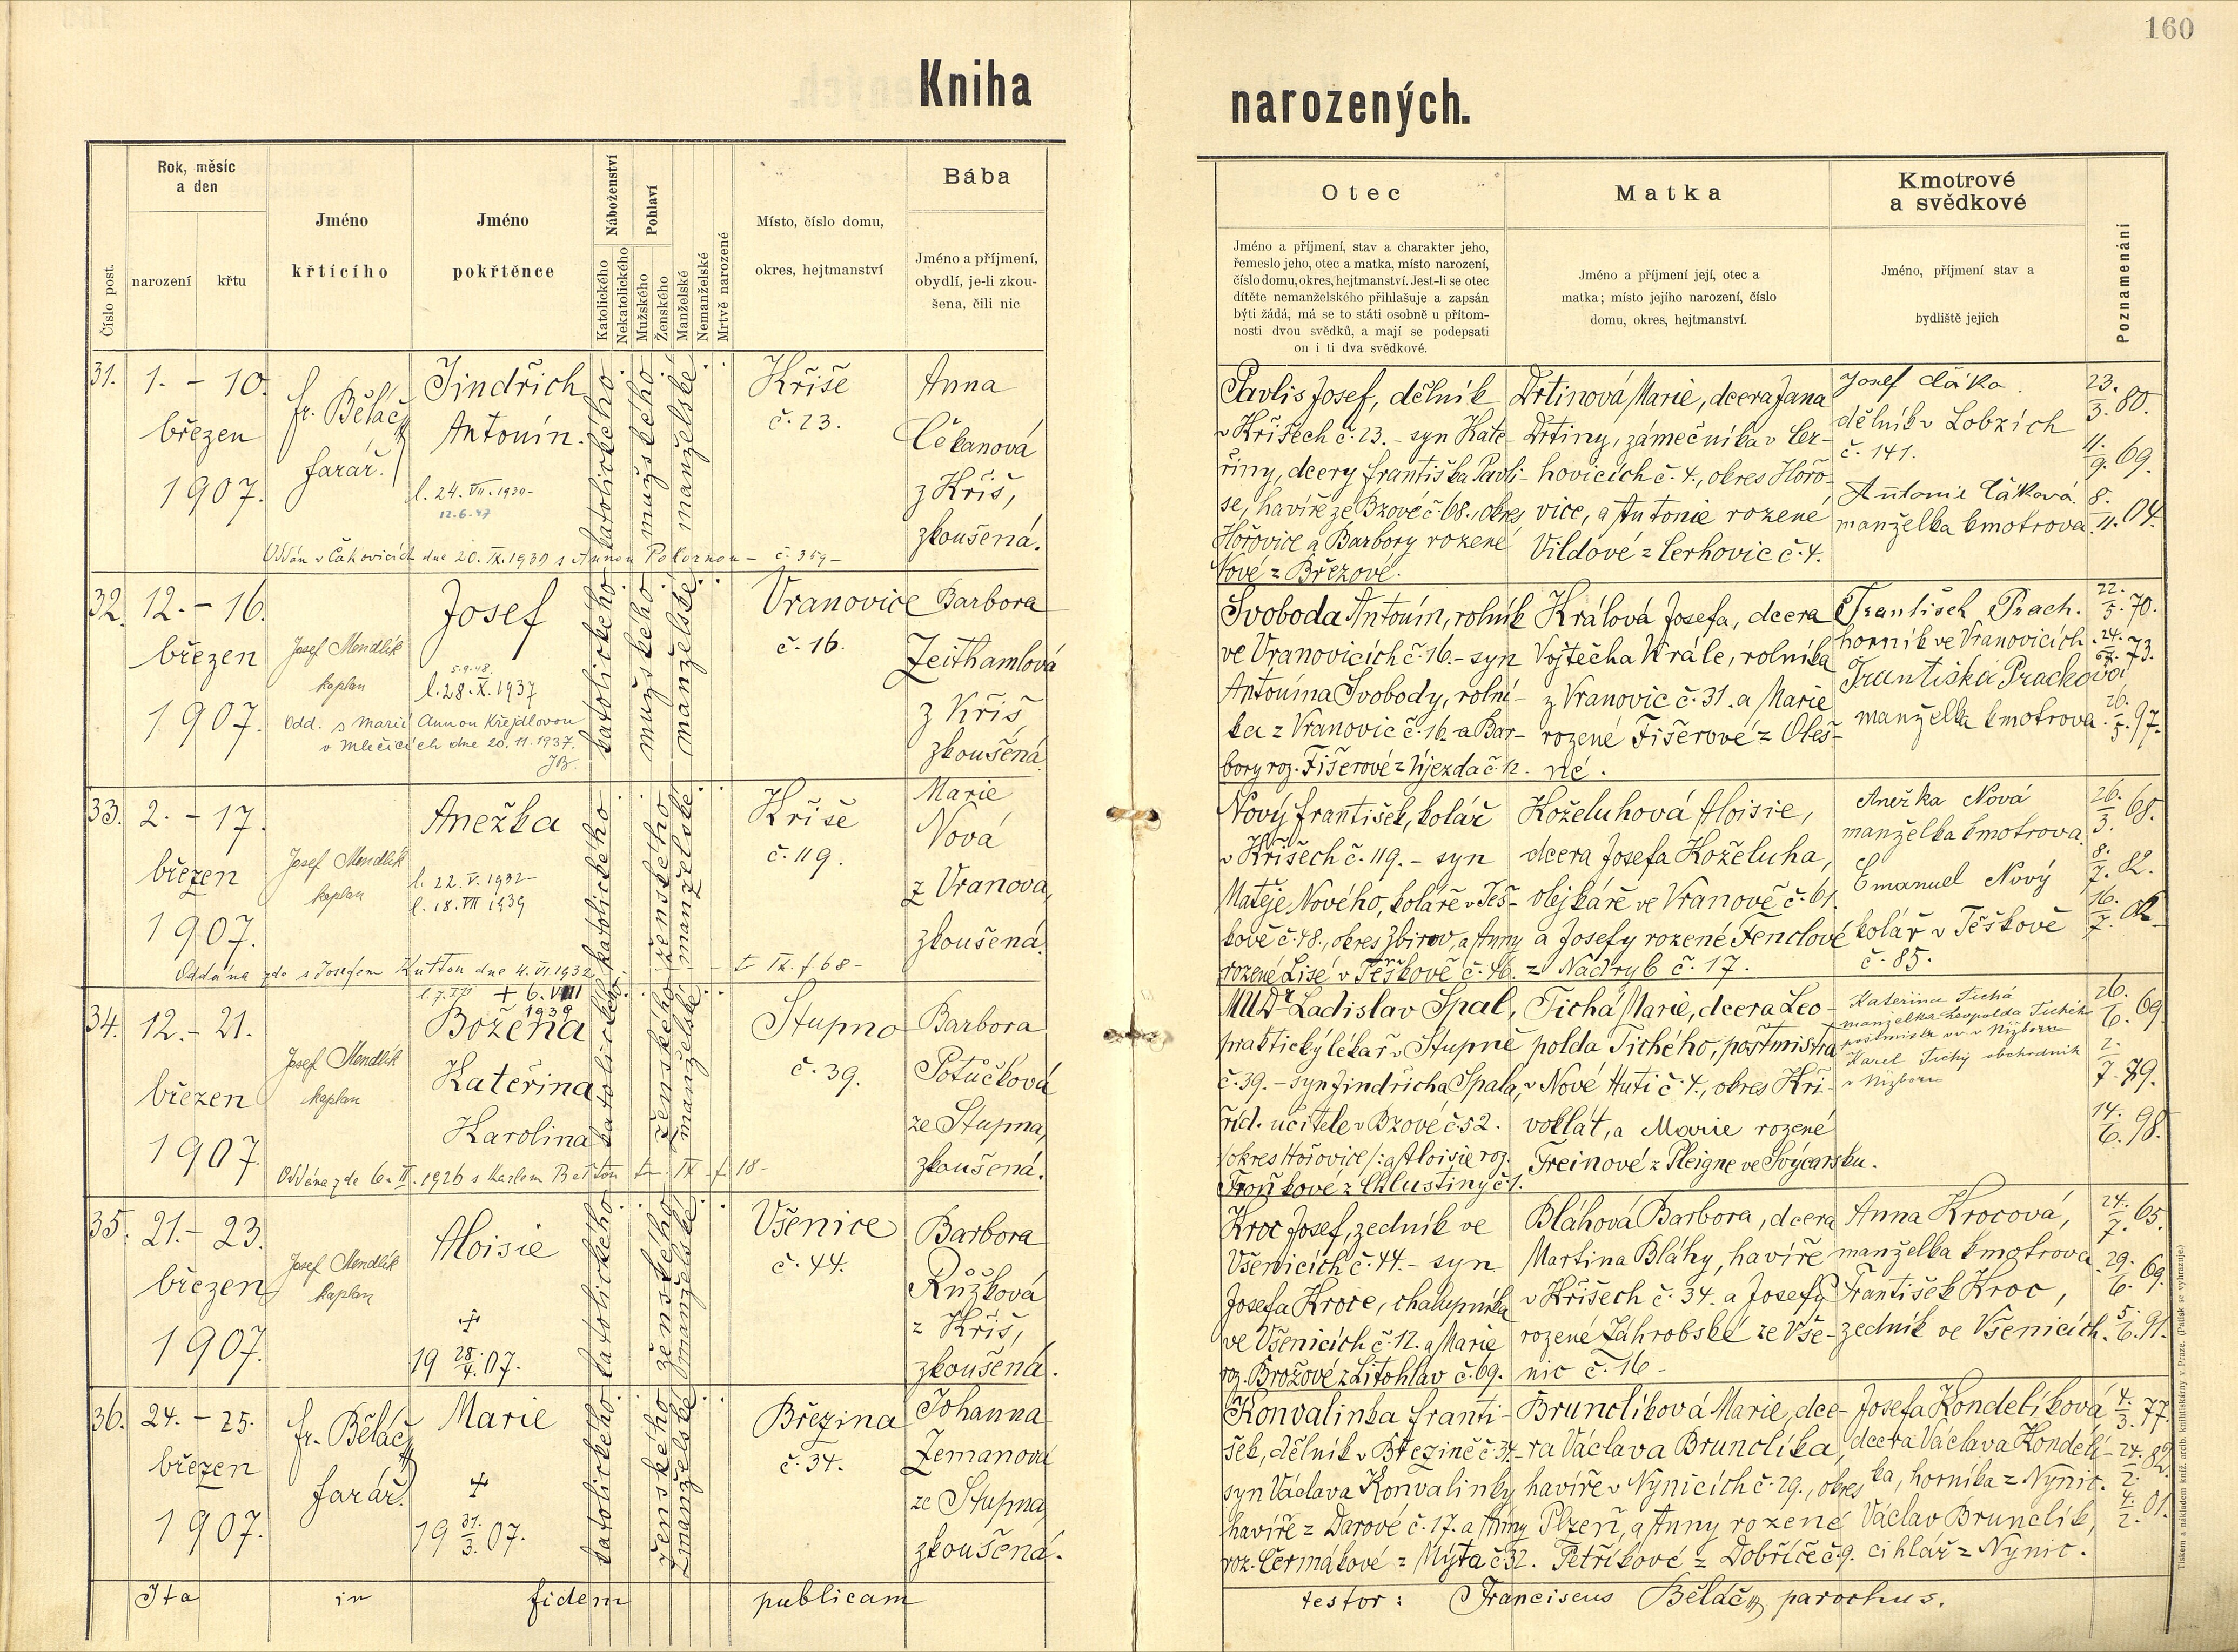 160
Kniha
narozených.
Číslo post.
Rok, měsíc
a den
narození
křtu
Jméno
křtícího
Jméno
pokřtěnce
Náboženství
Katolického
Nekatolického
Pohlaví
Mužského
Ženského
Manželské
Nemanželské
Mrtvě narozené
Místo, číslo domu,
okres, hejtmanství
Bába
Jméno a příjmení,
obydlí, je-li zkou-
šena, čili nic
Otec
Jméno a příjmení, stav a charakter jeho,
řemeslo jeho, otec a matka, místo narození,
číslo domu, okres, hejtmanství. Jest-li se otec
dítěte nemanželského přihlašuje a zapsán
býti žádá, má se to státi osobně u přítom-
nosti dvou svědků, a mají se podepsati
on i ti dva svědkové.
Matka
Jméno a příjmení její, otec a
matka; místo jejího narození, číslo
domu, okres, hejtmanství.
Kmotrové
a svědkové
Jméno, příjmení stav a
bydliště jejich
Poznamenání
31.
1. - 10.
březen
1907.
fr. Běláč
farář.
Jindřich
Antonín.
l. 24. VII. 1930-
12.6.47
Oddán v Čakovicích dne 20. IX. 1930 s Annou Pokornou - č. 359 -
katolického
mužského
manželské
Kříše
č. 23.
Anna
Čekanová
z Kříš,
zkoušená.
Pavlis Josef, dělník
v Kříšech č. 23. - syn Kate-
řiny, dcery františka Pavli-
se, havíře ze Bzové č. 68., okres
Hořovice a Barbory rozené
Nové z Březové.
Drtinová Marie, dcera Jana
Drtiny, zámečníka v Cer-
hovicích č. 4., okres Hořo-
vice, a Antonie rozené
Vildové z Cerhovic č. 4.
Josef Cáka
dělník v Lobzích
č. 141.
Antonie Cáková
manželka kmotrova
23./3. 80.
11./9. 69.
8./11. 04.
32.
12. - 16.
březen
1907.
Josef Mendlík
kaplan
Josef
5.9.48.
l. 28. X. 1937
Odd. s Marií Annou Křejdlovou
v Mlečicích dne 20. 11. 1937.
JB.
katolického
mužského
manželské
Vranovice
č. 16.
Barbora
Zeithamlová
z Kříš
zkoušená
Svoboda Antonín, rolník
ve Vranovicích č. 16. - syn
Antonína Svobody, rolní-
ka z Vranovic č. 16 a Bar-
bory roz. Fišerové z Újezda č. 12.
Králová Josefa, dcera
Vojtěcha Krále, rolníka
z Vranovic č. 31. a Marie
rozené Fišerové z Oleš-
né.
František Prach.
horník ve Vranovicích
Františka Prachová
manželka kmotrova
22./5. 70.
24. 73.
26./5. 97.
33.
2. - 17.
březen
1907.
Josef Mendlík
kaplan
Anežka
l. 22. V. 1932-
l. 18. VII 1939
Oddána zde s Josefem Kuttou dne 4. VI. 1932 - t IX. f 68 -
katolického
ženského
manželské
Kříše
č. 119.
Marie
Nová
z Vranova,
zkoušená.
Nový františek, kolář
v Kříšech č. 119. - syn
Matěje Nového, koláře v Těš-
kově č. 48., okres Zbirov, a Anny
rozené Lisé v Těškově č. 46.
Koželuhová Aloisie,
dcera Josefa Koželuha,
olejkáře ve Vranově č. 61.
a Josefy rozené Fenclové
z Nadryb č. 17.
Anežka Nová
manželka kmotrova
Emanuel Nový
kolář v Těškově
č. 85.
26./3. 68.
8./7. 82.
16./7. 02
34.
12. - 21.
březen
1907.
Josef Mendlík
kaplan
+ 6. VIII
1939
Božena
Kateřina
Karolina
Oddána zde 6. II. 1926 s Karlem - tm. IX - f. 18 -
katolického
ženského
manželské
Stupno
č. 39.
Barbora
Potůčková
ze Stupna,
zkoušená.
MUDr Ladislav Spal,
praktický lékař v Stupně
č. 39. - syn Jindřicha Spala,
říd. učitele v Bzové č. 52.
/okres Hořovice/: a Aloisie roz.
Froňkové z Chlustiny č. 1.
Tichá Marie, dcera Leo-
polda Tichého, poštmistra
v Nové Huti č. 4., okres Kři-
voklát, a Marie rozené
Freinové z Pleigne ve Švýcarsku.
Kateřina Tichá
manželka Leopolda Tichého
poštmistra vv v Nižboru
Karel Tichý obchodník
v Nižboru
26./6. 69.
2./7. 79.
14./6. 98.
35.
21. - 23.
březen
1907.
Josef Mendlík
kaplan
Aloisie
+
19 28./4. 07.
katolického
ženského
manželské
Všenice
č. 44.
Barbora
Růžková
z Kříš,
zkoušená.
Kroc Josef, zedník ve
Všenicích č. 44. - syn
Josefa Kroce, chalupníka
ve Všenicích č. 12. a Marie
roz. Brožové z Litohlav č. 69.
Bláhová Barbora, dcera
Martina Bláhy, havíře
v Kříšech č. 34. a Josefy
rozené Záhrobské ze Vše-
nic č. 16 -
Anna Krocová,
manželka kmotrova
František Kroc,
zedník ve Všenicích.
24./7. 65.
29./6. 69.
5./6. 91.
36.
24. - 25.
březen
1907.
fr. Běláč
farář.
Marie
+
19 31./3. 07.
katolického
ženského
manželské
Březina
č. 34.
Johanna
Zemanová
ze Stupna,
zkoušená.
Konvalinka franti-
šek, dělník v Březině č. 34.-
syn Václava Konvalinky
havíře z Darové č. 17. a Anny
roz. Čermákové z Mýta č. 32.
Brunclíková Marie, dce-
ra Václava Brunclíka,
havíře v Nýnicích č. 29., okres
Plzeň, a Anny rozené
Petříkové z Dobříče č. 9.
Josefa Kondelíková
dcera Václava Kondelí-
ka, horníka z Nýnic.
Václav Brunclík,
cihlář z Nýnic.
4./3. 77.
24./2. 82.
4./2. 01.
Ita in fidem publicam
testor: Franciscus Běláč parochus.
Tiskem a nákladem kníž. arcib. knihtiskárny v Praze. (Patisk se vyhrazuje.)